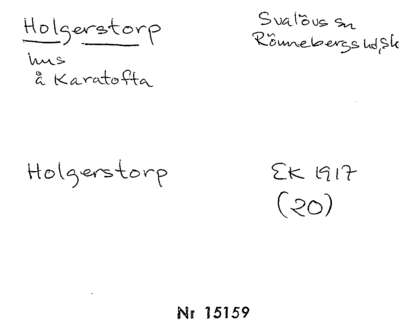 Holgerstorp
Svalövs sn
Rönnebergs hd, Sk
hus
å Karatofta
Holgerstorp
EK 1917
(20)
Nr 15159